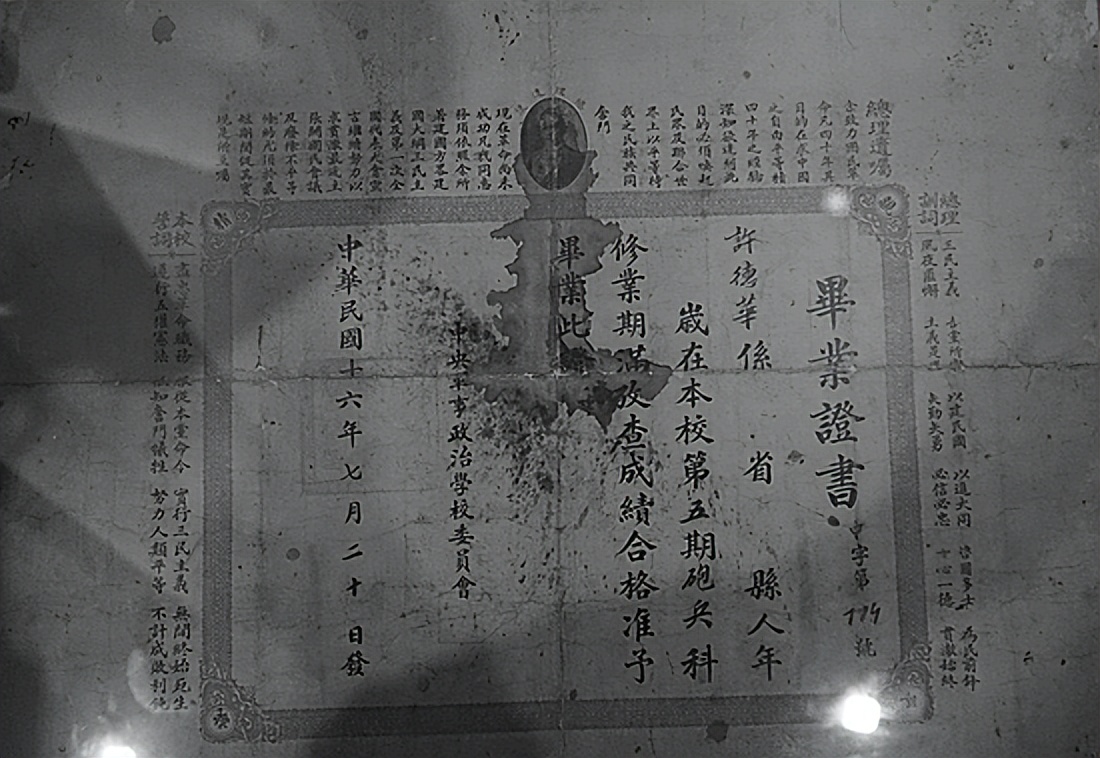 總理遺囑
余致力國民革
命凡四十年其
目的在求中國
之自由平等積
四十年之經驗
深知欲達到此
目的必須喚起
民眾及聯合世
界上以平等待
我之民族共同
奮鬥
現在革命尚未
成功凡我同志
務須依照余所
著建國方畧建
國大綱三民主
義及第一次全
國代表大會宣
言繼續努力以
求貫澈最近主
張開國民會議
及廢除不平等
條約尤須於最
短期間促其實
現是所至囑
總理
訓詞
三民主義 吾黨所宗 以建民國 以進大同 咨爾多士 為民前鋒
夙夜匪懈 主義是從 矢勤矢勇 必信必忠 一心一德 貫澈始終
畢業證書
中字第 號
許德華係 省 縣人年
歲在本校第五期砲兵科
修業期滿攷查成績合格准予
畢業此證
中央軍事政治學校委員會
中華民國十六年七月二十日發
本校
誓詞
盡忠革命職務 服從本黨命令 實行三民主義 無間終始死生
遵行五權憲法 只知奮鬥犧牲 努力人類平等 不計成敗利鈍